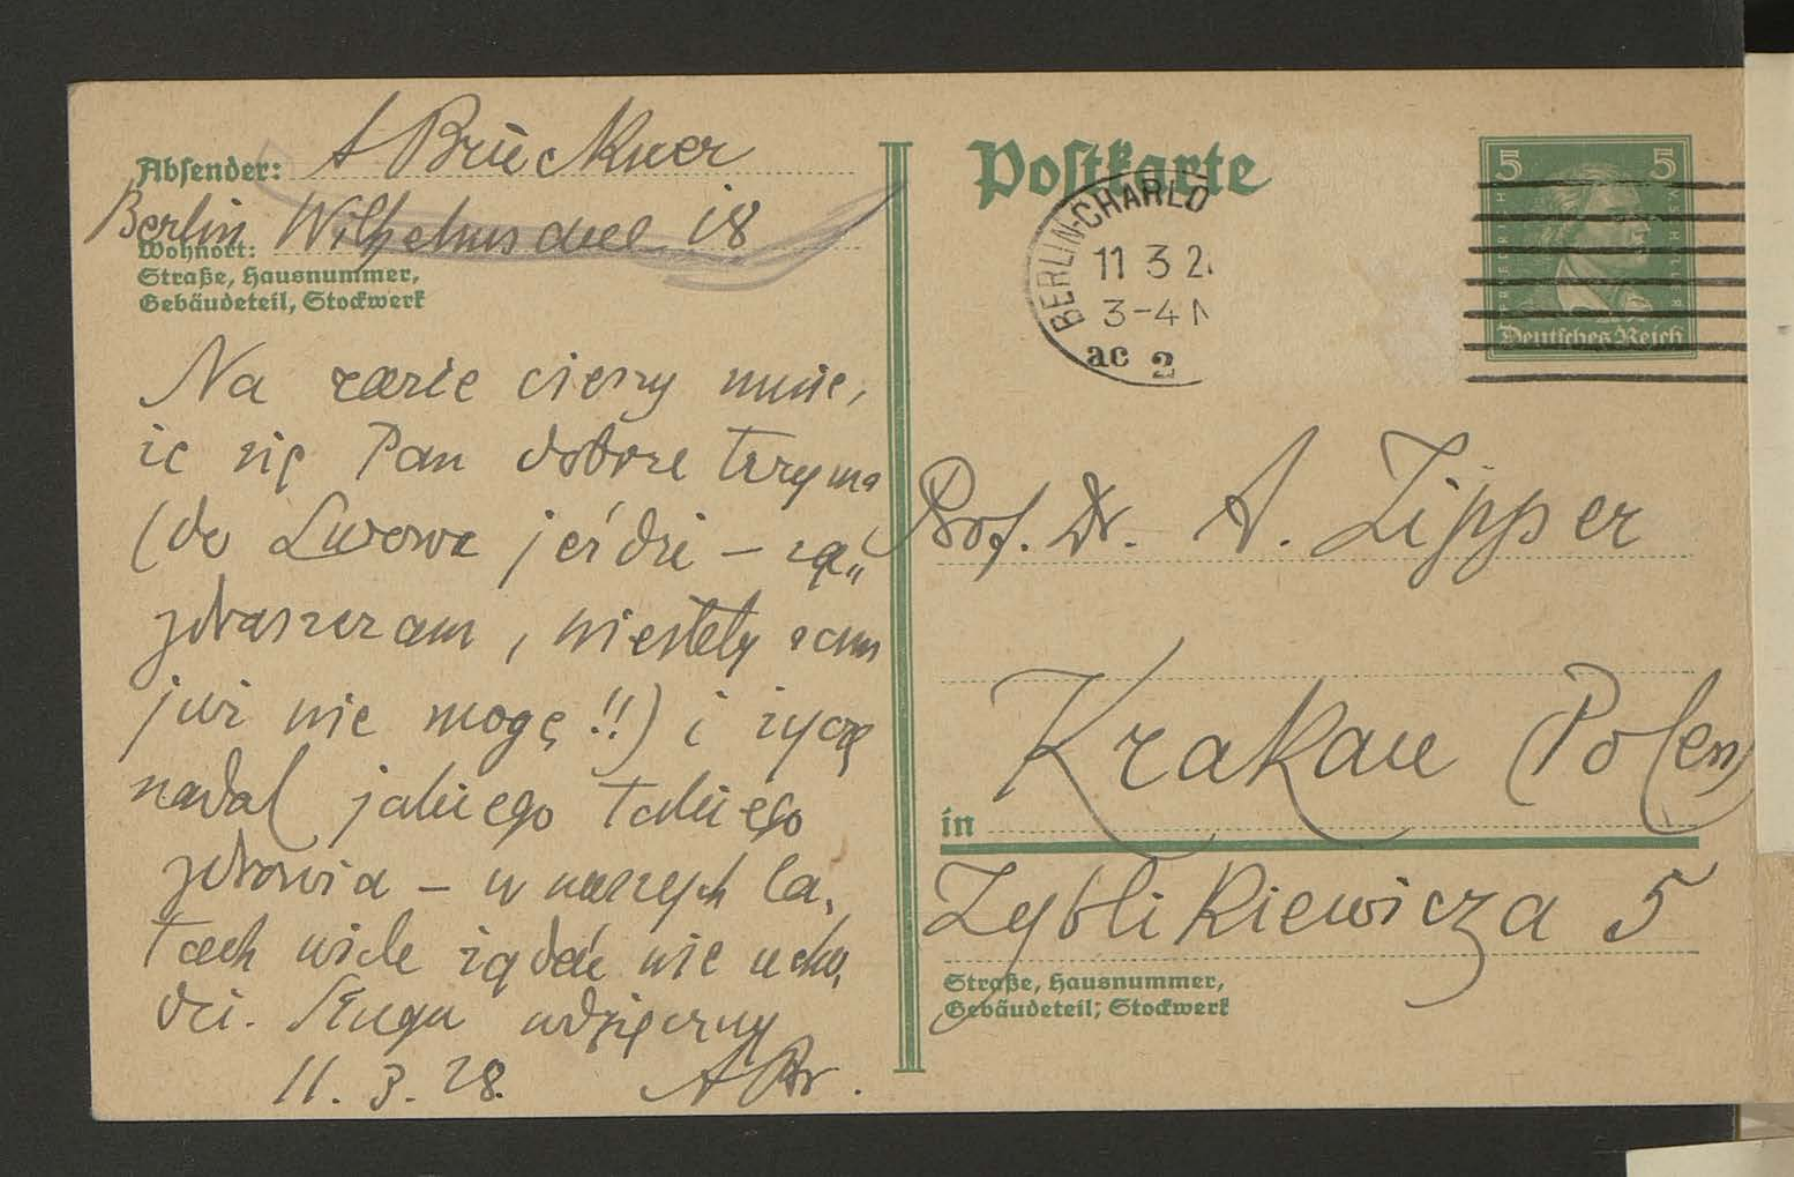 Absender: A Brückner
Berlin Wilhelmsaue 18
Wohnort:
Straße, Hausnummer,
Gebäudeteil, Stockwerk
Na razie cieszy mnie,
że się Pan dobrze trzyma
(do Lwowa jeździ –
zdraszczam, niestety sam
już nie mogę!!) i życzę
nadal jakiego takiego
zdrowia – w naszych la,
tach wiele żądać nie ucho,
dzi. Sługa wdzięczny
11. 3. 28. ABr.
Postkarte
BERLIN-CHARLO
11 3 2
3-4 N
ac 2
5 5
FRIEDRICH SCHILLER
Deutsches Reich
Prof. Dr. A. Zipper
Krakau (Polen)
in
Zyblikiewicza 5
Straße, Hausnummer,
Gebäudeteil; Stockwerk